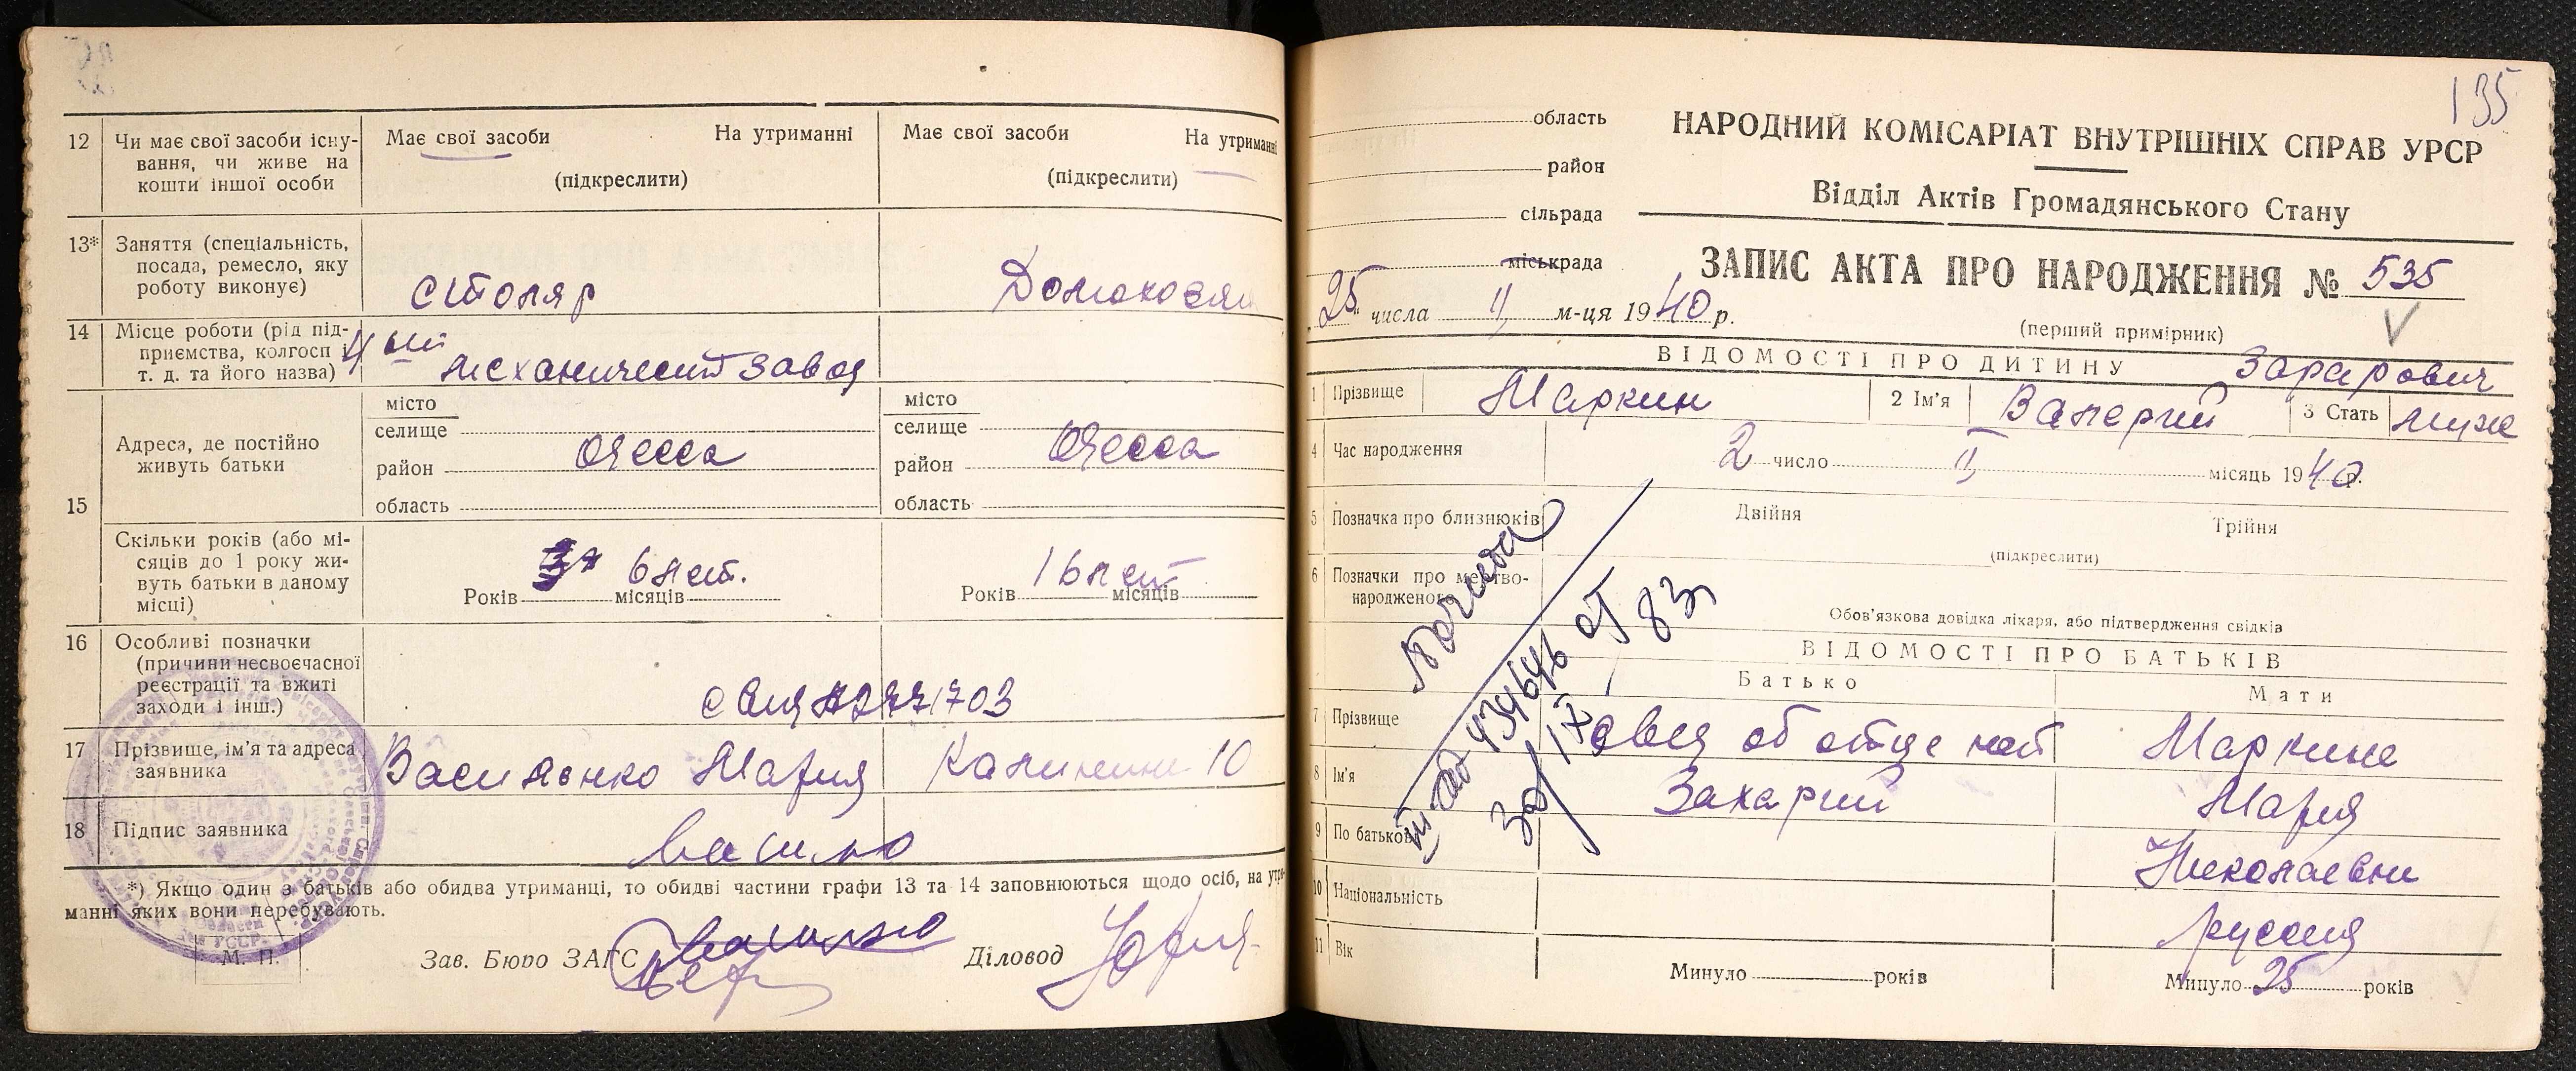 12 Чи має свої засоби існу-
вання, чи живе на
кошти іншої особи
Має свої засоби На утриманні
(підкреслити)
Має свої засоби На утриманні
(підкреслити)
13* Заняття (спеціальність,
посада, ремесло, яку
роботу виконує)
столяр
Домохозяй
14 Місце роботи (рід під-
приємства, колгосп і
т. д. та його назва)
механический завод
15 Адреса, де постійно
живуть батьки
місто
селище
район Одесса
область
місто
селище
район Одесса
область
Скільки років (або мі-
сяців до 1 року жи-
вуть батьки в даному
місці)
6 лет.
Років місяців
16 лет
Років місяців
16 Особливі позначки
(причини несвоєчасної
реєстрації та вжиті
заходи і інш.)
17 Прізвище, ім'я та адреса
заявника
Василенко Мария Калинина 10
18 Підпис заявника
*) Якщо один з батьків або обидва утриманці, то обидві частини графи 13 та 14 заповнюються щодо осіб, на утри-
манні яких вони перебувають.
М. П.
Зав. Бюро ЗАГС Діловод
135
область
район
сільрада
міськрада
НАРОДНИЙ КОМІСАРІАТ ВНУТРІШНІХ СПРАВ УРСР
Відділ Актів Громадянського Стану
ЗАПИС АКТА ПРО НАРОДЖЕННЯ № 535
25 числа II м-ця 1940 р.
(перший примірник)
ВІДОМОСТІ ПРО ДИТИНУ
1 Прізвище Маркин 2 Ім'я Валерий 3 Стать муж
4 Час народження 2 число II місяць 1940 р.
5 Позначка про близнюків Двійня Трійня
(підкреслити)
6 Позначки про мертво-
народженого
Обов'язкова довідка лікаря, або підтвердження свідків
ВІДОМОСТІ ПРО БАТЬКІВ
Батько Мати
7 Прізвище свед об отце нет Маркина
8 Ім'я Захарий Мария
9 По батькові Николаевна
10 Національність русская
11 Вік Минуло років Минуло 25 років